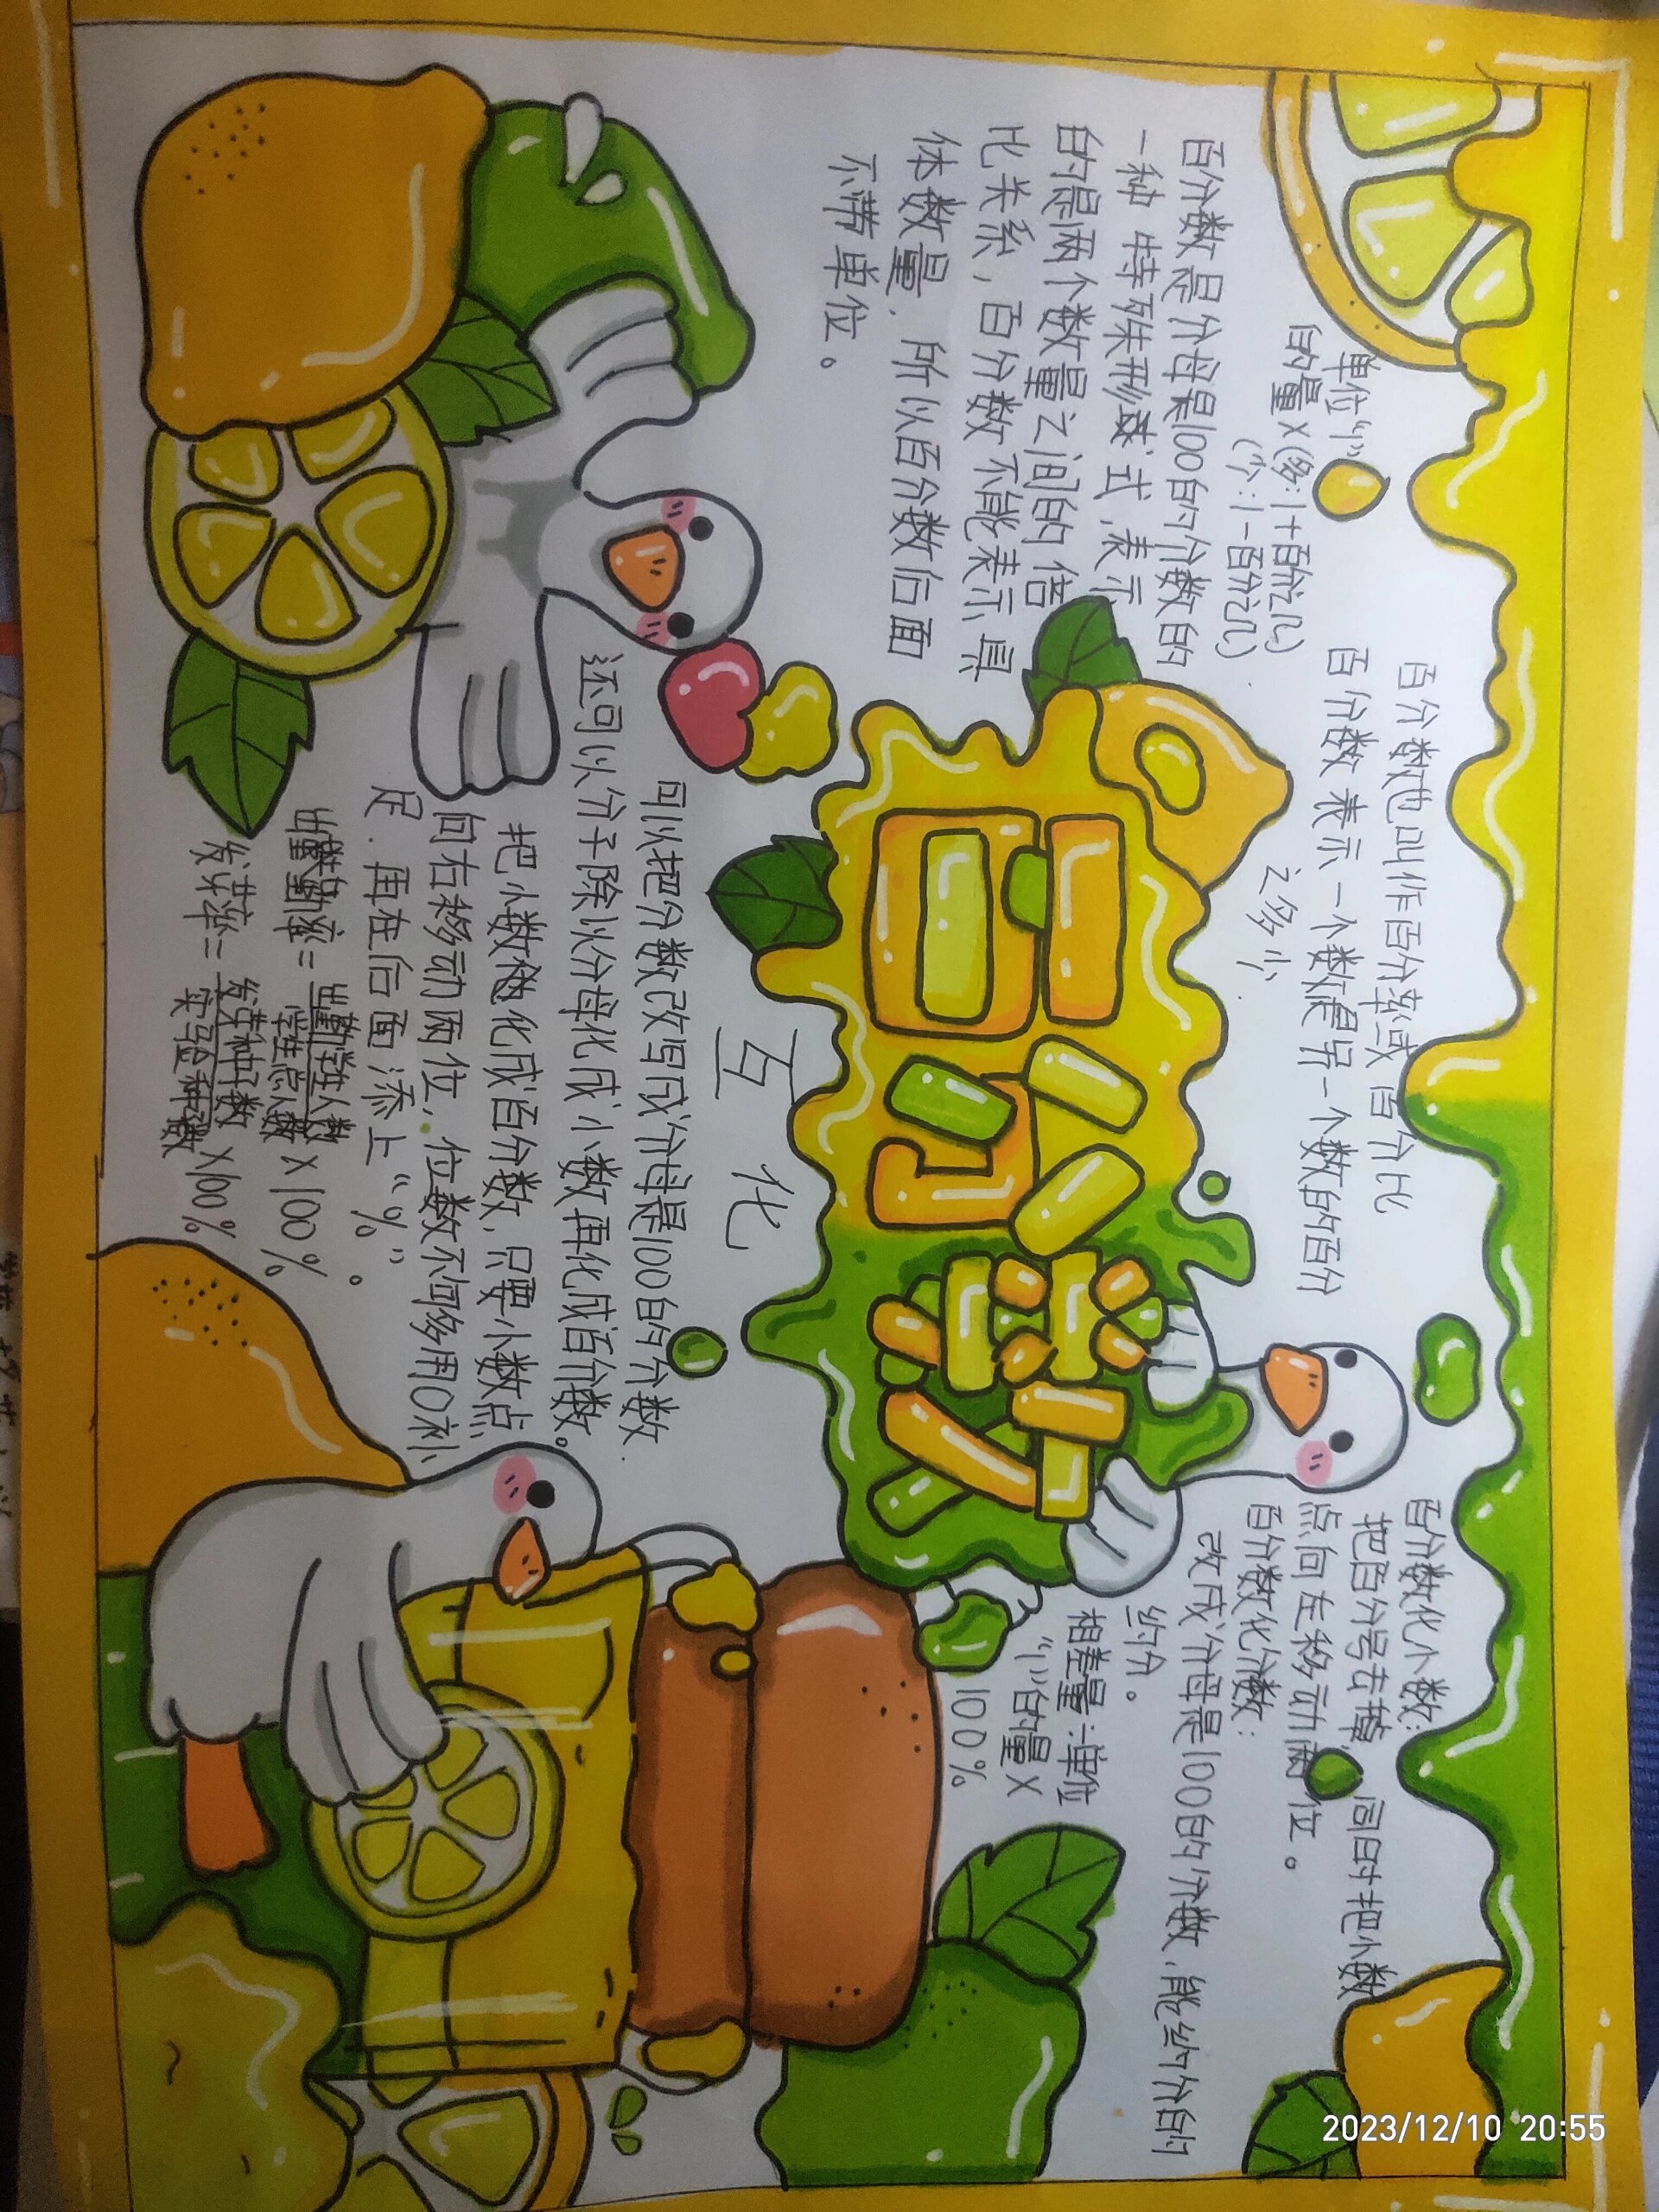 百分数
单位“1”
的量×(多:1+百分之几)
(少:1-百分之几)
百分数是分母是100的分数的
一种 特殊形式,表示
的是两个数量之间的倍
比关系,百分数不能表示具
体数量.所以百分数后面
不带单位。
百分数也叫作百分率或 百分比
百分数 表示 一个数是另一个数的百分
之多少.
百分数化小数:
把百分号去掉,同时把小数
点向左移动两位。
百分数化分数:
改成分母是100的分数,能约分的
约分。
相差量÷单位
“1”的量×
100%
互化
可以把分数改写成分母是100的分数
还可以分子除以分母化成小数再化成百分数。
把小数化成百分数,只要小数点
向右移动两位,位数不够用0补
足.再在后面添上“%”。
出勤率=出勤学生人数/学生总人数×100%
发芽率=发芽种子数/实验种子数×100%
2023/12/10 20:55